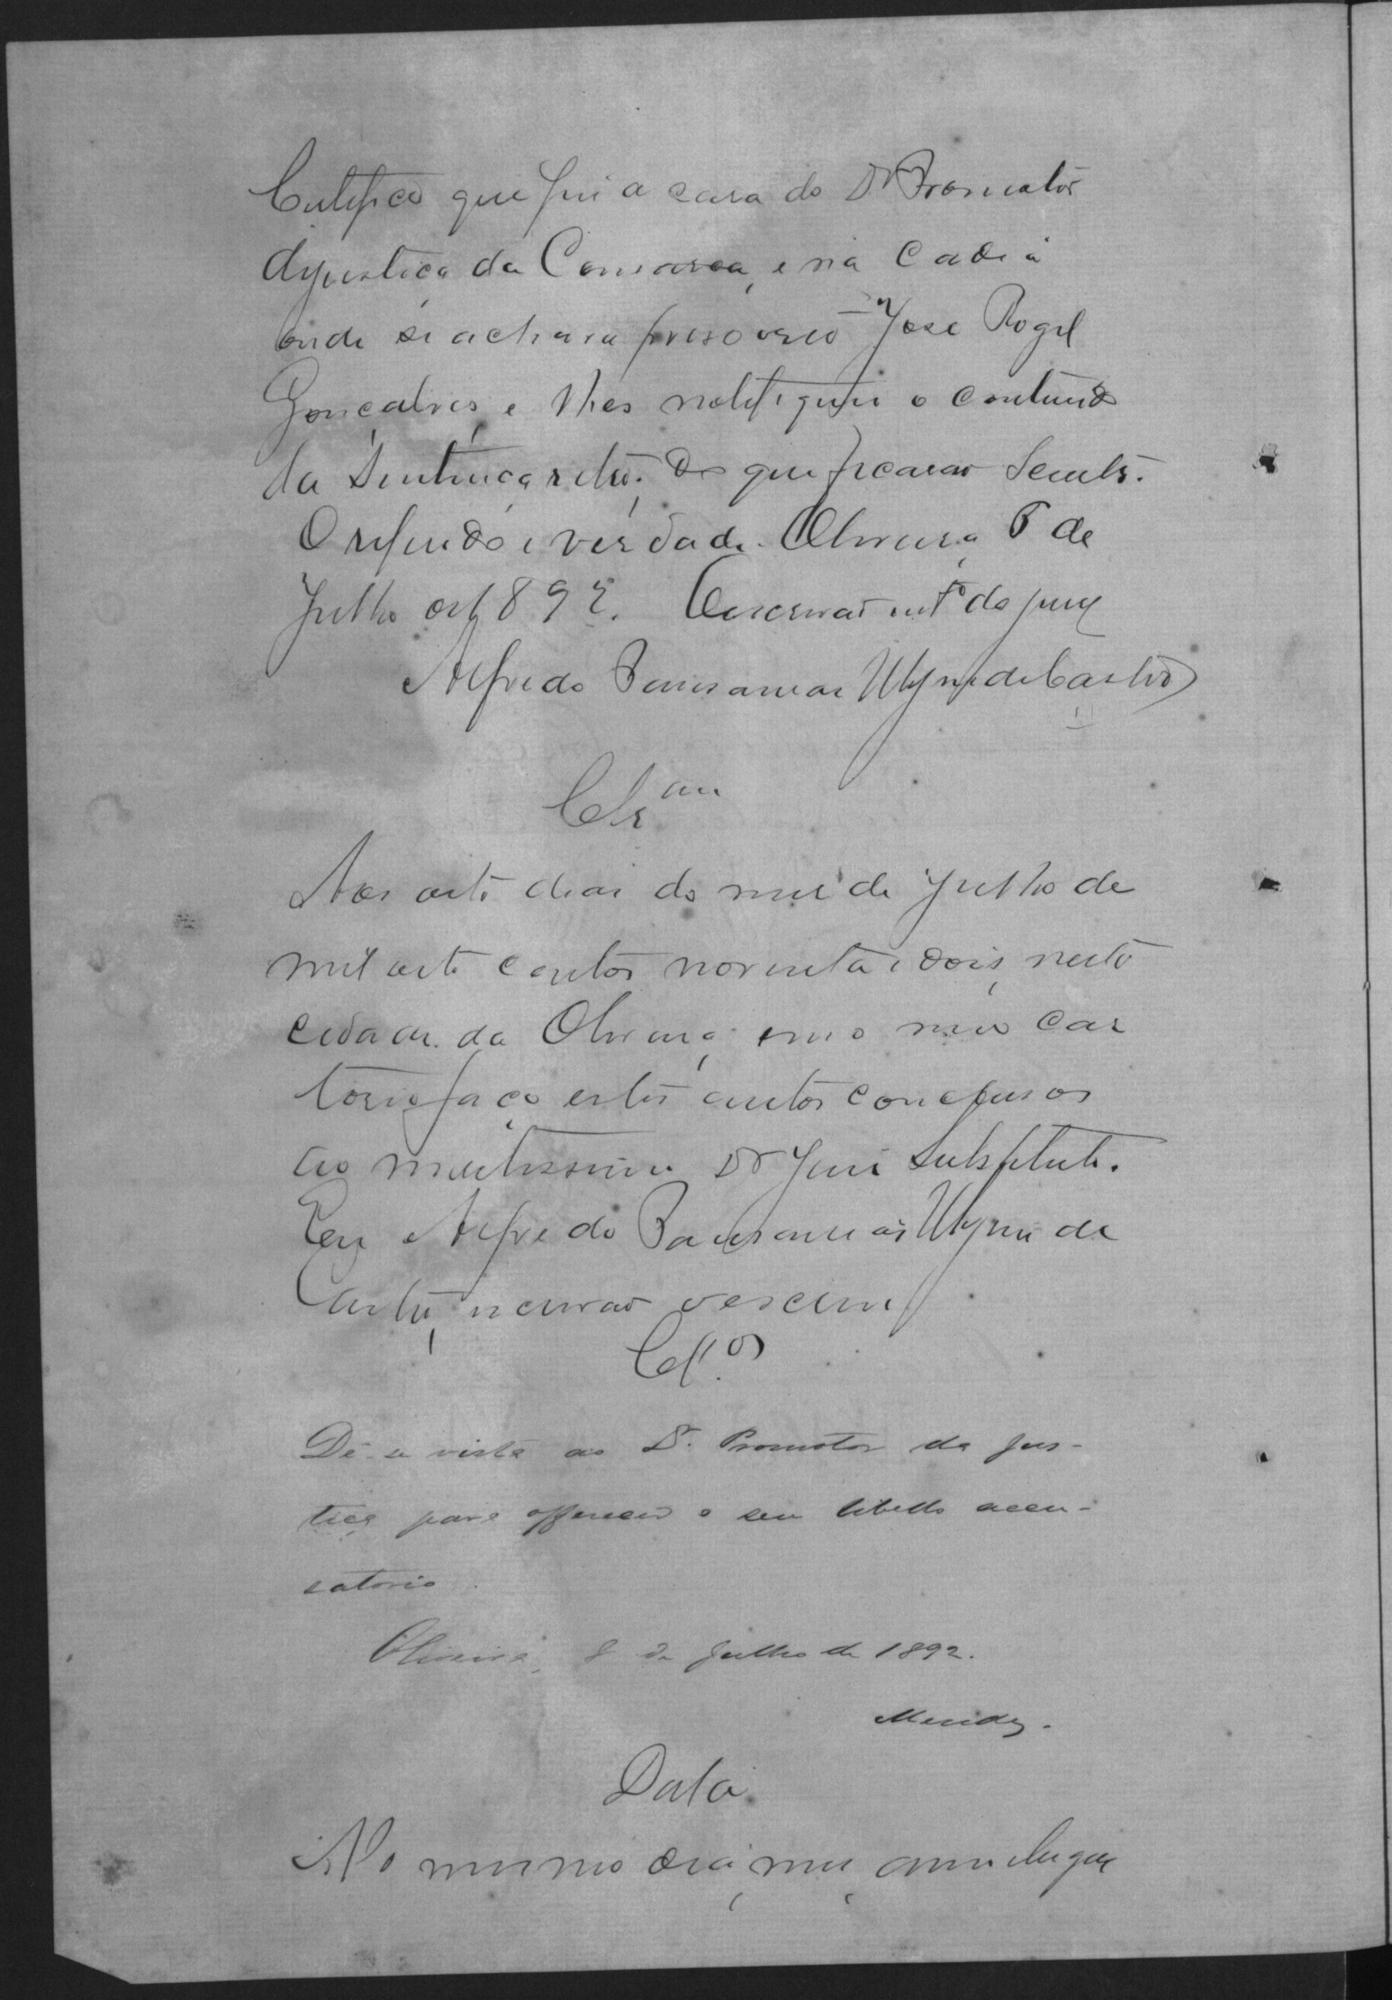 Certifico que fui a casa do Dr Promotor
de justiça da Comarca, e na Cadeia
onde se achava preso o reo José Rogel
Gonçalves, e lhes notifiquei o contendo
da Sentença retro; do que ficarão Scientes.
O referido é verdade. Oliveira, 6 de
Julho de 1892. O escrivão int.º do jury
Alfredo Pausanias Wlyne de Castro
Cls.am
Aos oito dias do mez de Julho de
mil oito centos noventa e dois, nesta
cidade da Oliveira, em o meu car
torio faço estes autos conclusos
ao meritissimo Dr Juiz Substituto.
Eu Alfredo Pausanias Wlyne de
Castro, escrivão o escrevi
Cl.os
Dê-se vista ao Dr. Promotor da Jus-
tiça para offerecer o seu libello accu-
satorio.
Oliveira, 8 de Julho de 1892.
Mendes.
Data
No mesmo dia, mez, anno e lugar